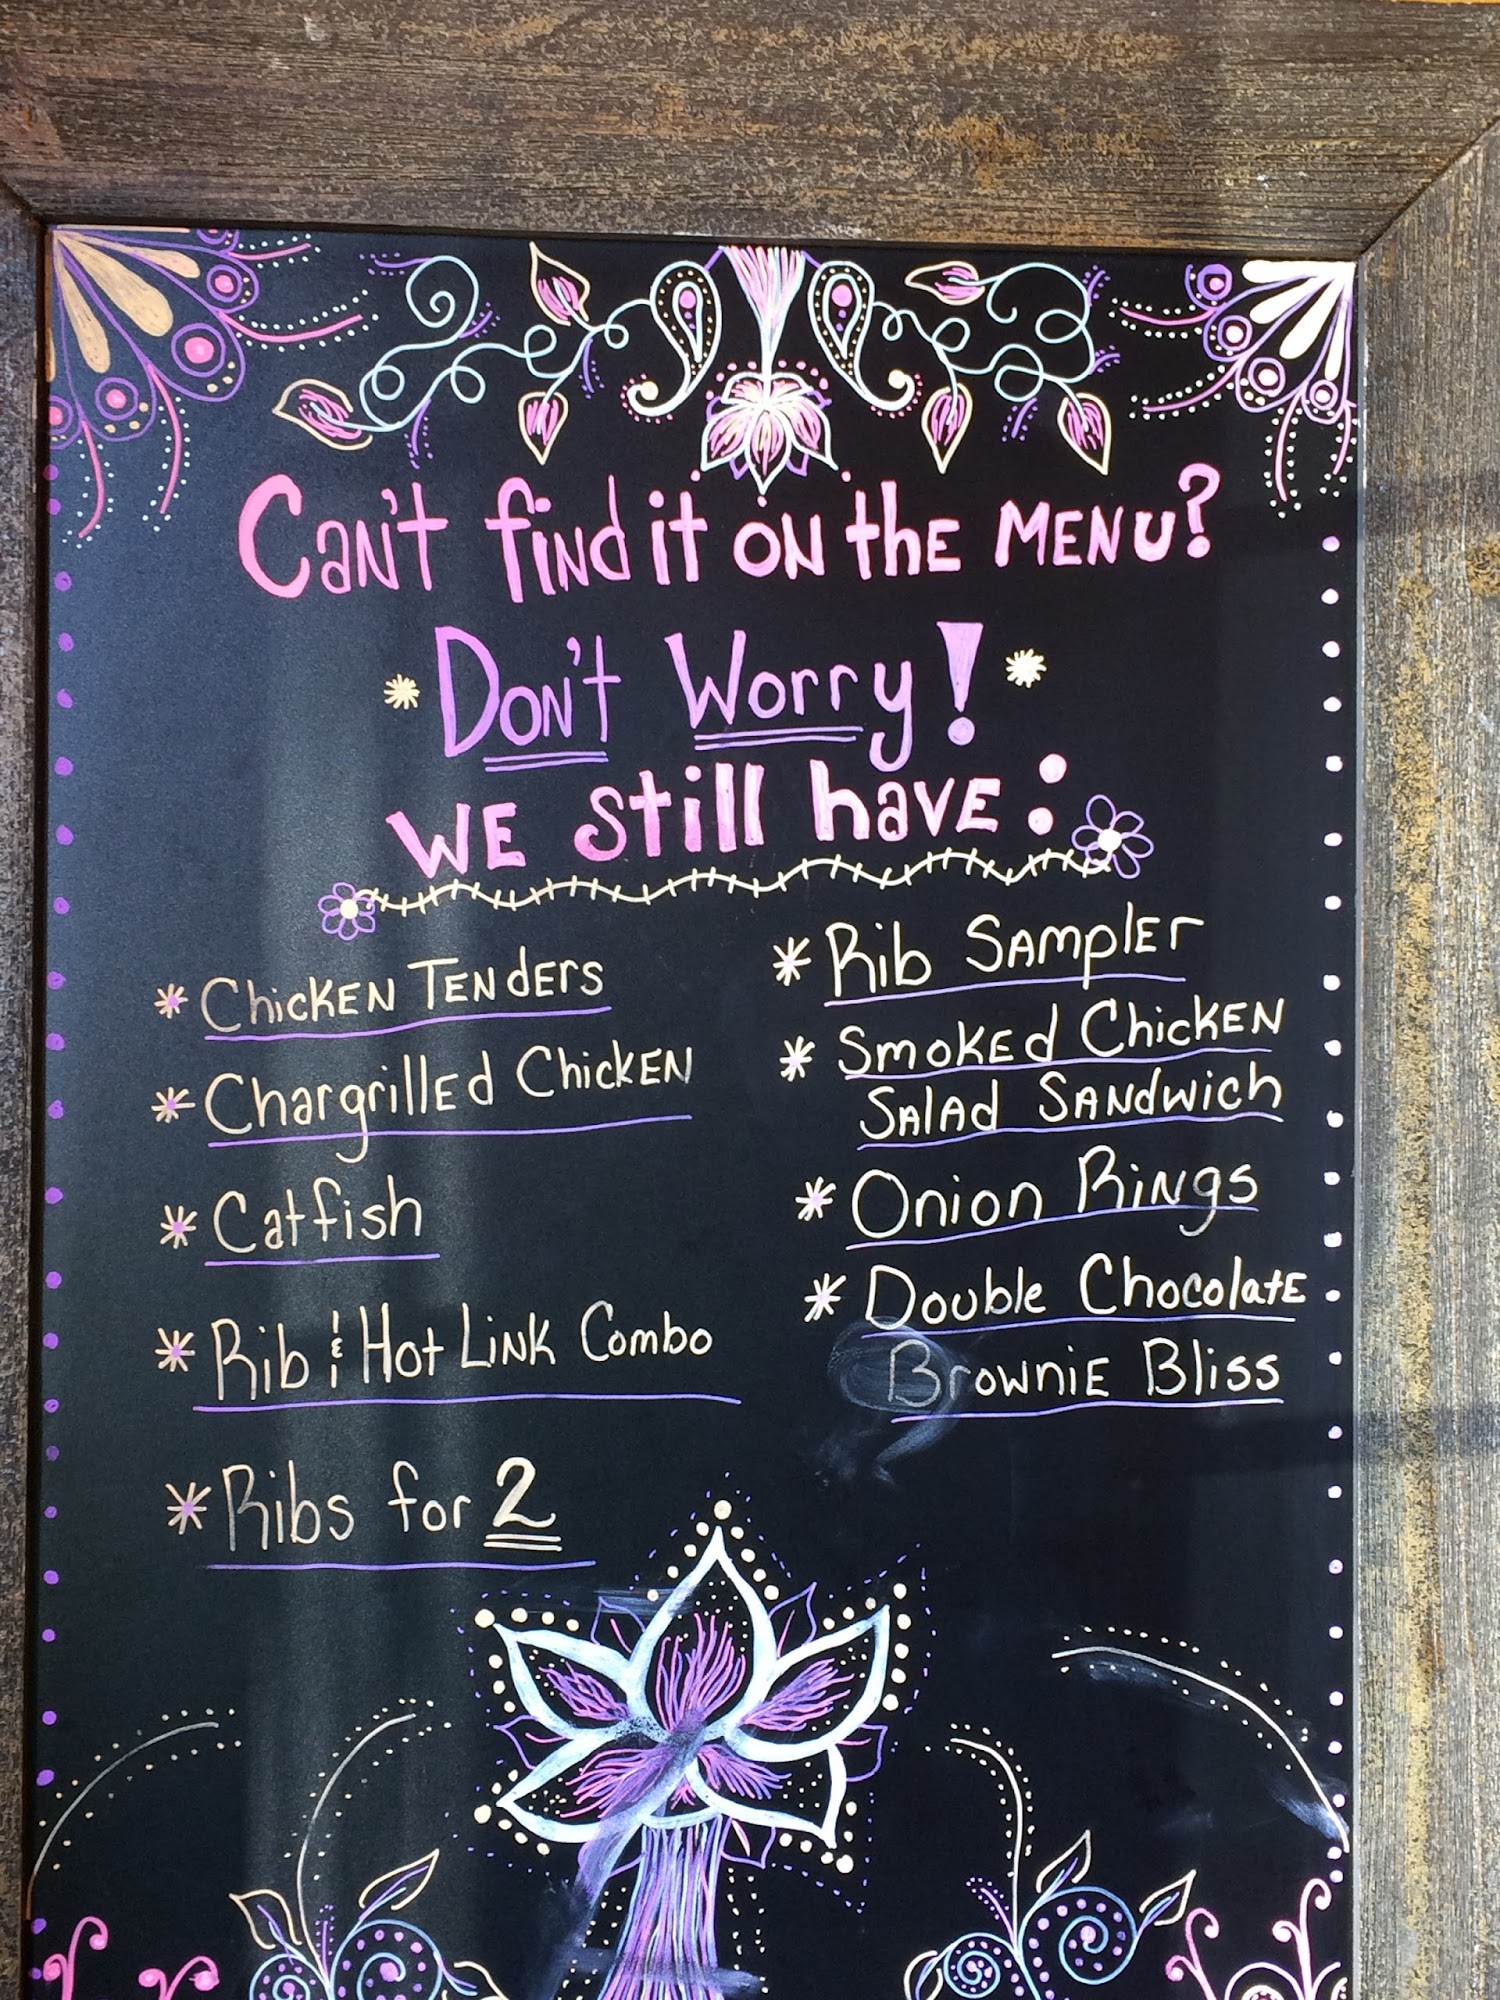 Can't find it on the menu?
Don't Worry!
We still have:
* Chicken Tenders
* Chargrilled Chicken
* Catfish
* Rib & Hot Link Combo
* Ribs for 2
* Rib Sampler
* Smoked Chicken
Salad Sandwich
* Onion Rings
* Double Chocolate
Brownie Bliss